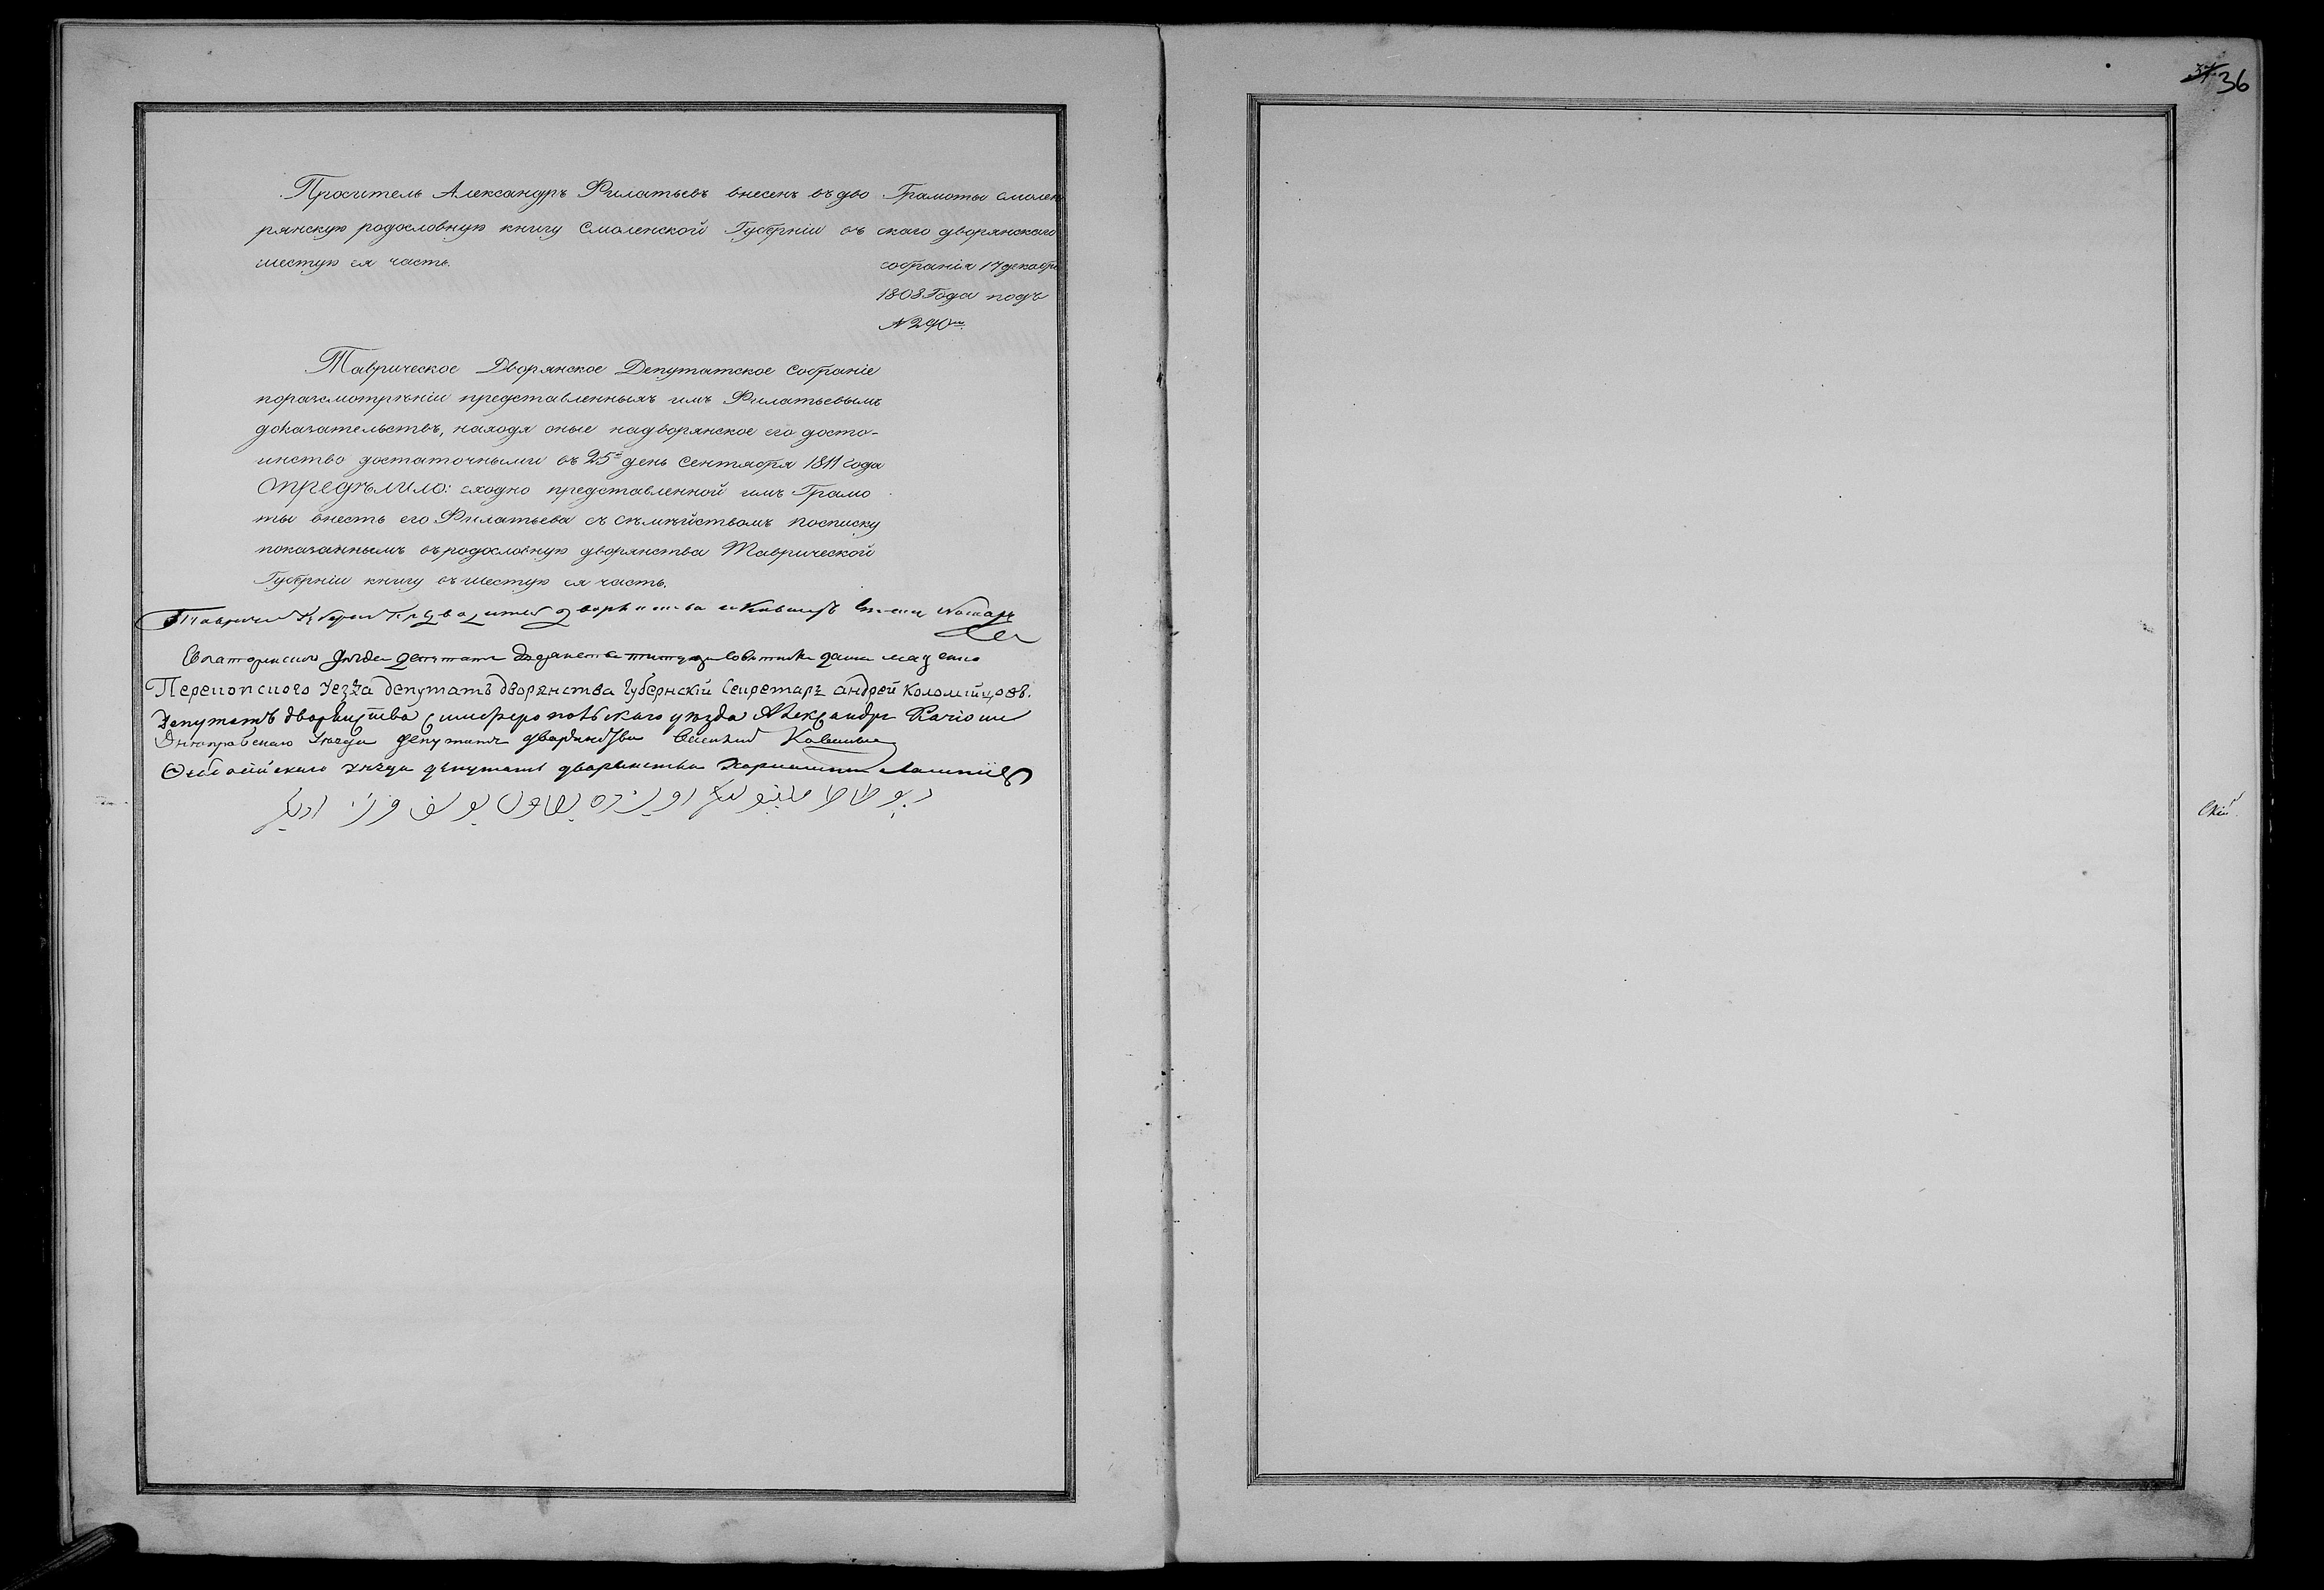 37 36
Проситель Александръ Филатьевъ внесенъ въ дво
рянскую родословную книгу Смоленской Губерніи въ
шестую ея часть.
Грамоты смолен
скаго дворянскаго
собранія 17 декабря
1808 Года подъ
№ 290мъ.
Таврическое Дворянское Депутатское Собраніе
поразсмотрѣніи представленныхъ имъ Филатьевымъ
доказательствъ, находя оные надворянское его досто-
инство достаточными въ 25й день Сентября 1811 года
Опредѣлило: сходно представленной имъ Грамо
ты внесть его Филатьева съ сѣмѣйствомъ посписку
показаннымъ въ родословную дворянства Таврической
Губерніи книгу въ шестую ея часть.
дворянства и Кавалеръ Нотара
Евпаторискаго уѣзда депутатъ
Перекопского уезда депутатъ дворянства Губернскій Секретарь андрей Коломійцовъ.
Депутатъ дворянства Симферопольскаго уюзда Александръ
Днепровскаго уезда депутатъ дворянства
Ѳеодосійскаго уезда депутатъ дворянства
скій